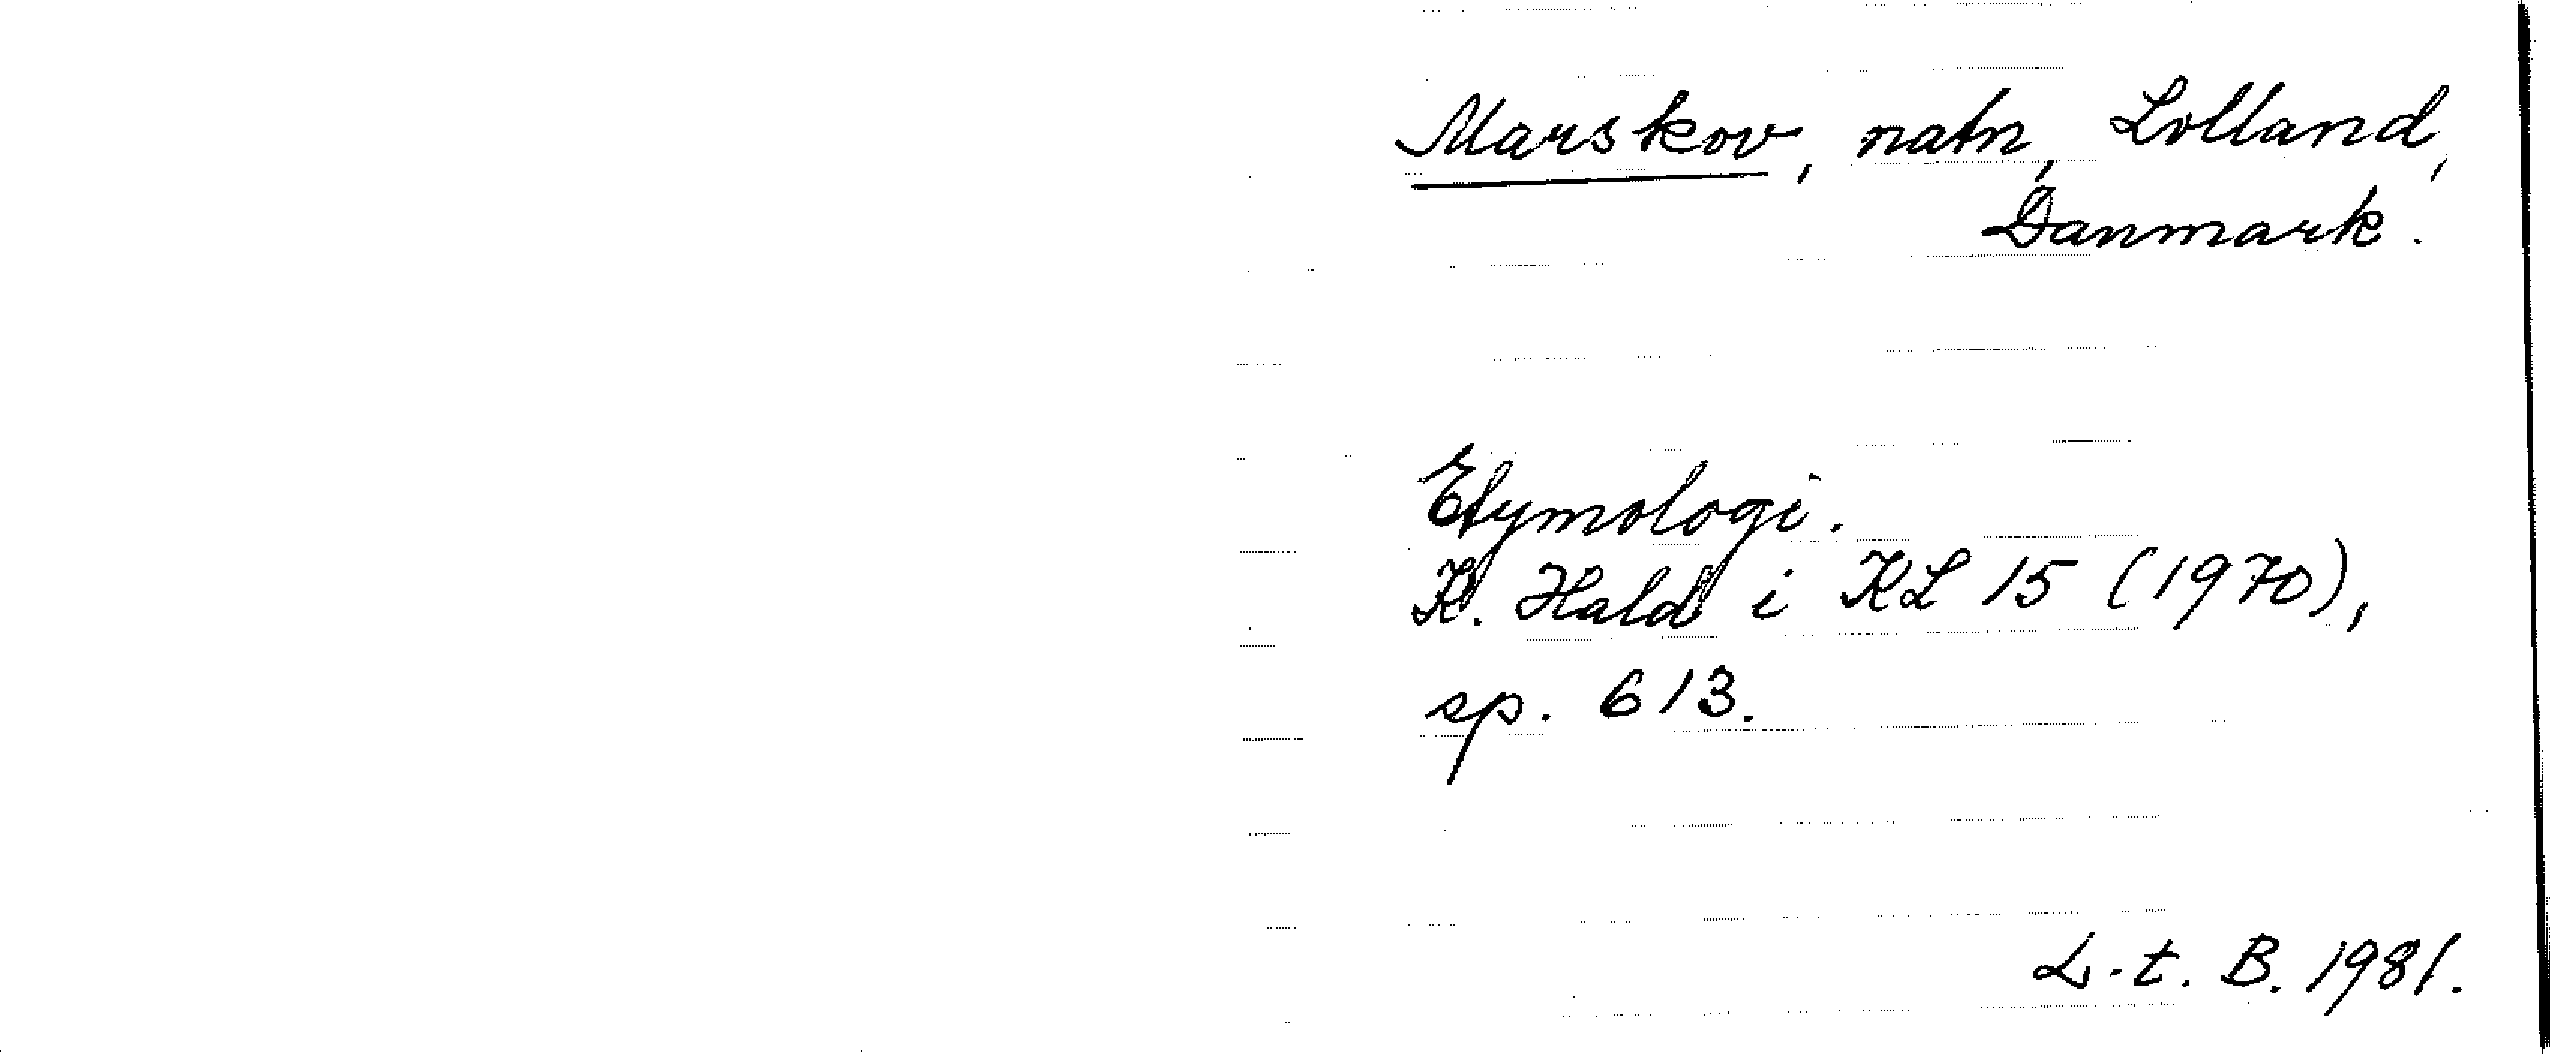 Marskov, natn, Lolland,
Danmark.
Etymologi.
K. Hald i KL 15 (1970),
sp. 613.
L-t. B. 1981.